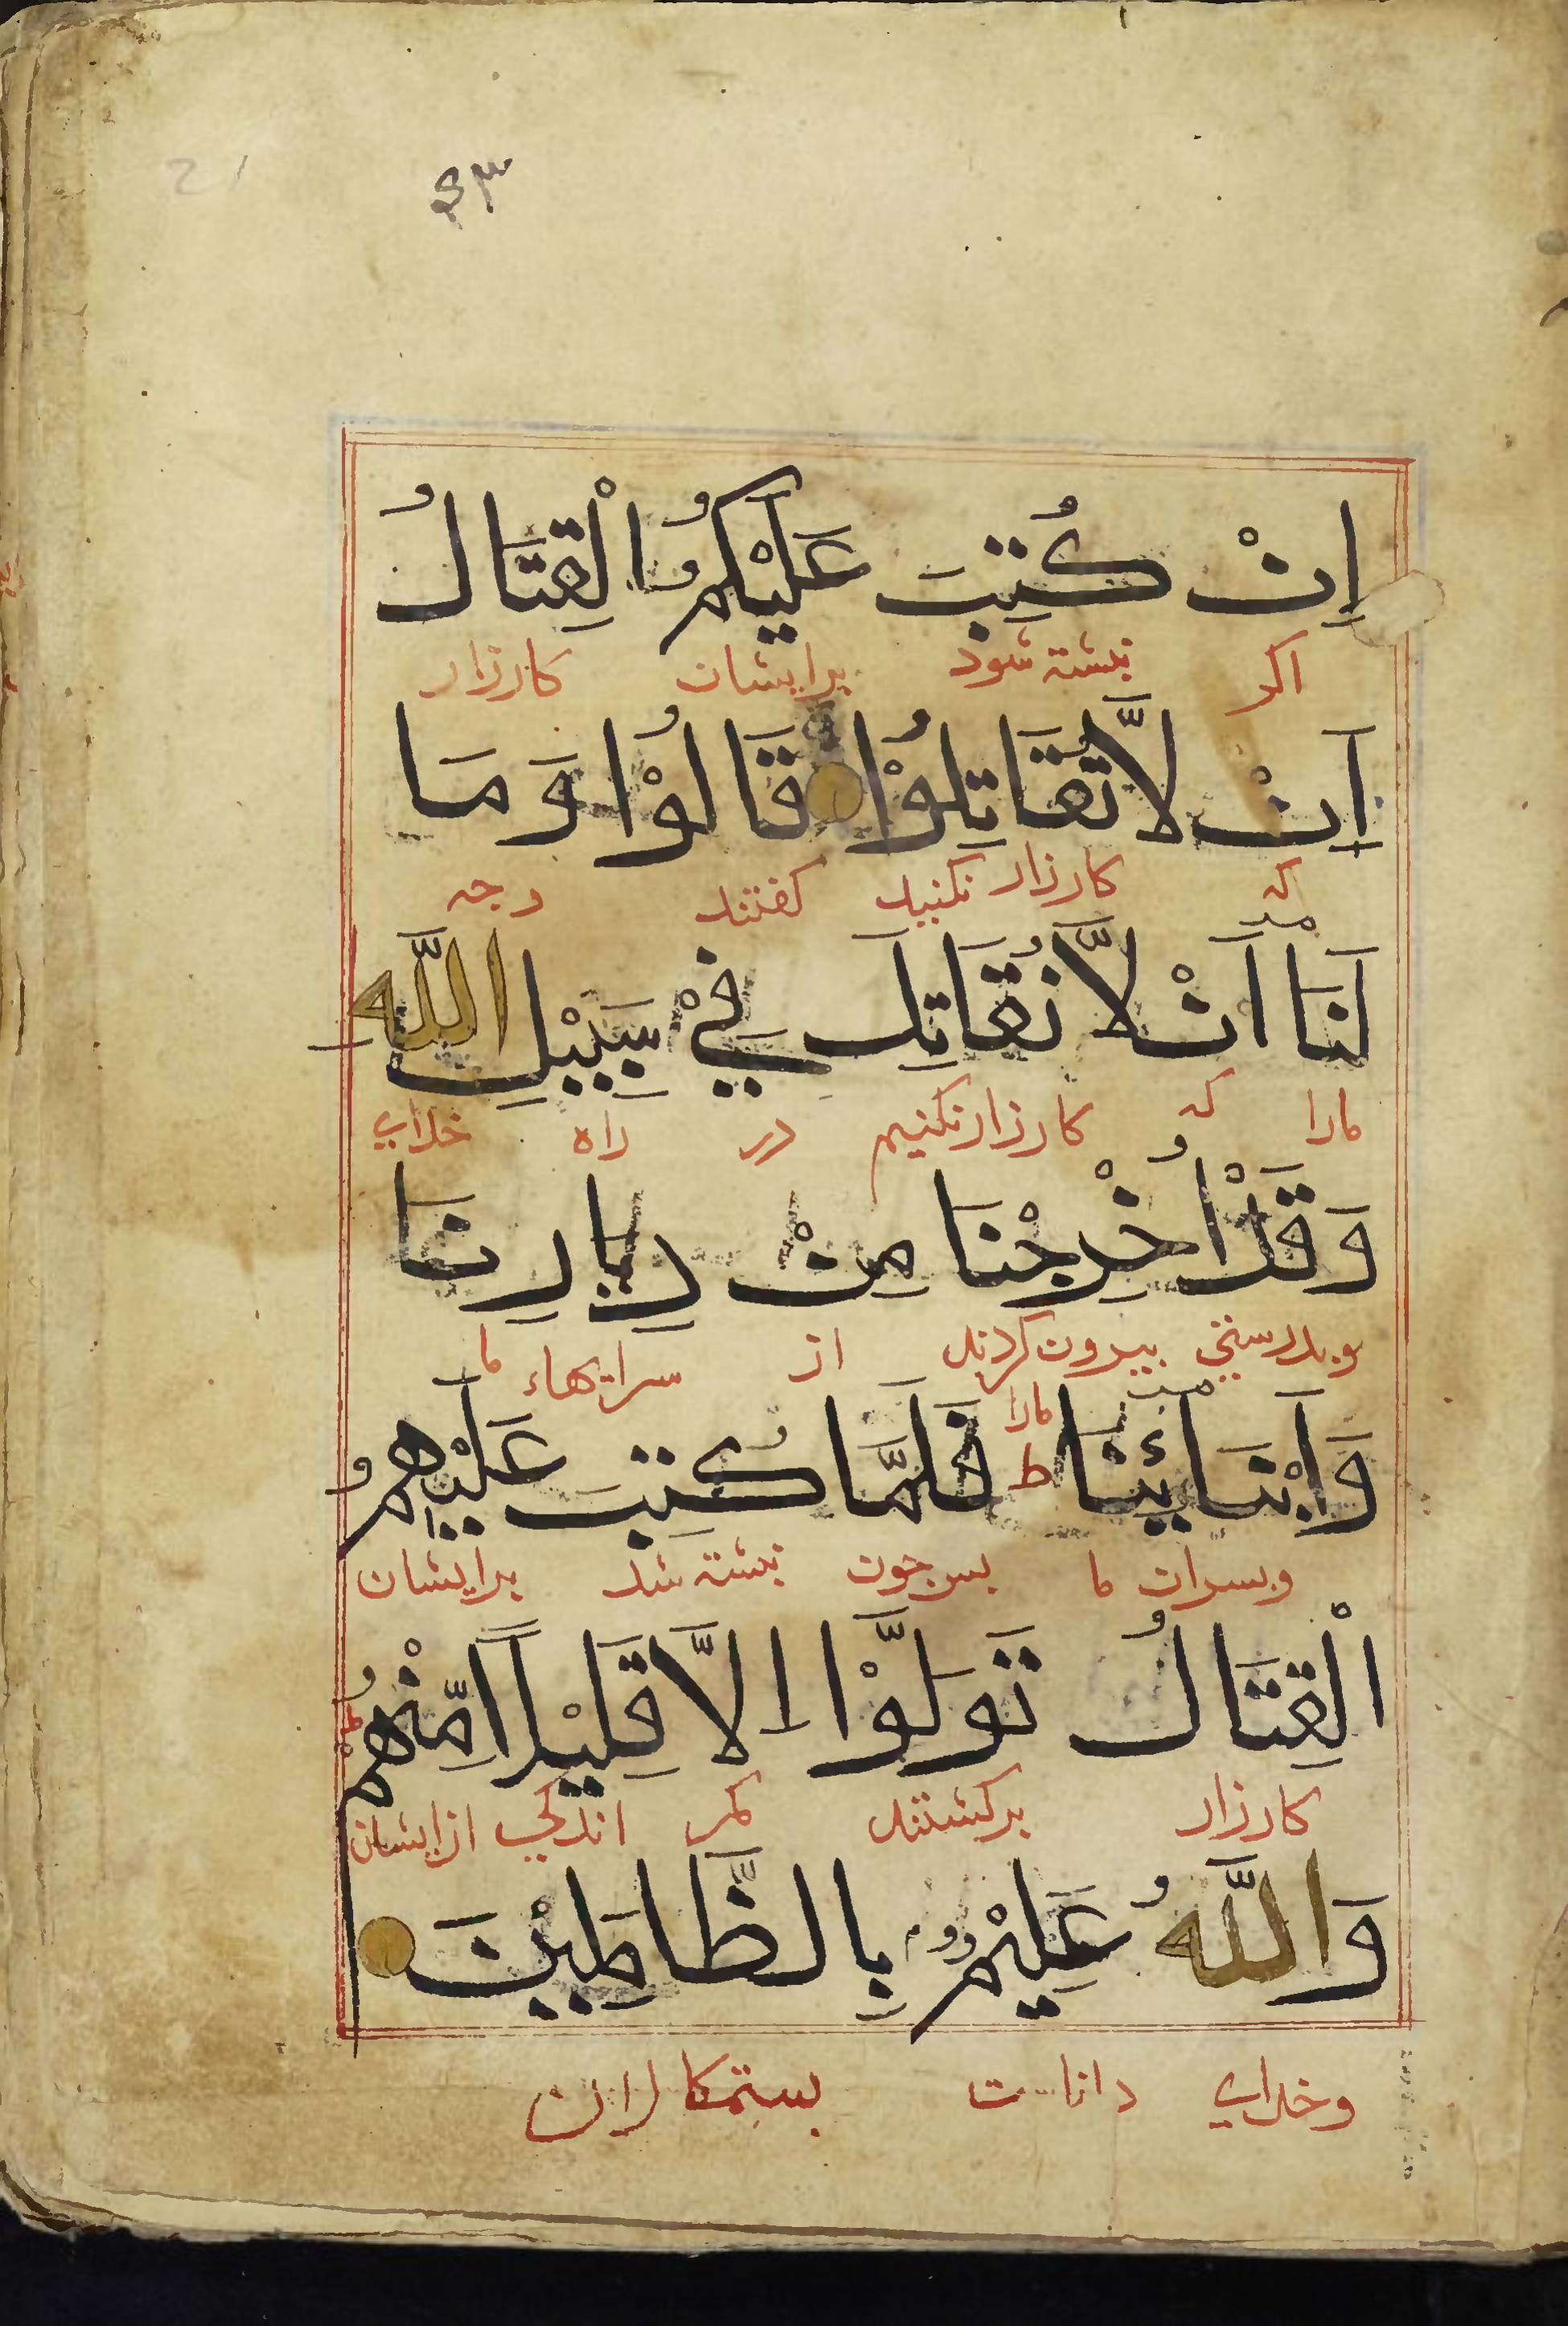 21
۴۳
اِنْ كُتِبَ عَلَيْكُمُ الْقِتَالُ
اكر نبشته شود برایشان كارزار
اَنْ لَّا تُقَاتِلُوْا قَالُوْا وَمَا
كه كارزار نكنید كفتند وجه
لَنَا اَنْ لَّا نُقَاتِلَ فِيْ سَبِيْلِ اللّٰهِ
مارا كه كارزار نكنیم در راه خدای
وَقَدْ اُخْرِجْنَا مِنْ دِيَارِنَا
وبدرستی بیرون كردند از سرایهاء ما
مارا
وَاَبْنَائِنَا ط فَلَمَّا كُتِبَ عَلَيْهِمُ
وبسران ما بس جون نبشته شد برایشان
الْقِتَالُ تَوَلَّوْا اِلَّا قَلِيْلًا مِّنْهُمْ
كارزار بركشتند مكر اندكی ازایشان
وَاللّٰهُ عَلِيْمٌ بِالظَّالِمِيْنَ
وخدای داناست بستمكاران